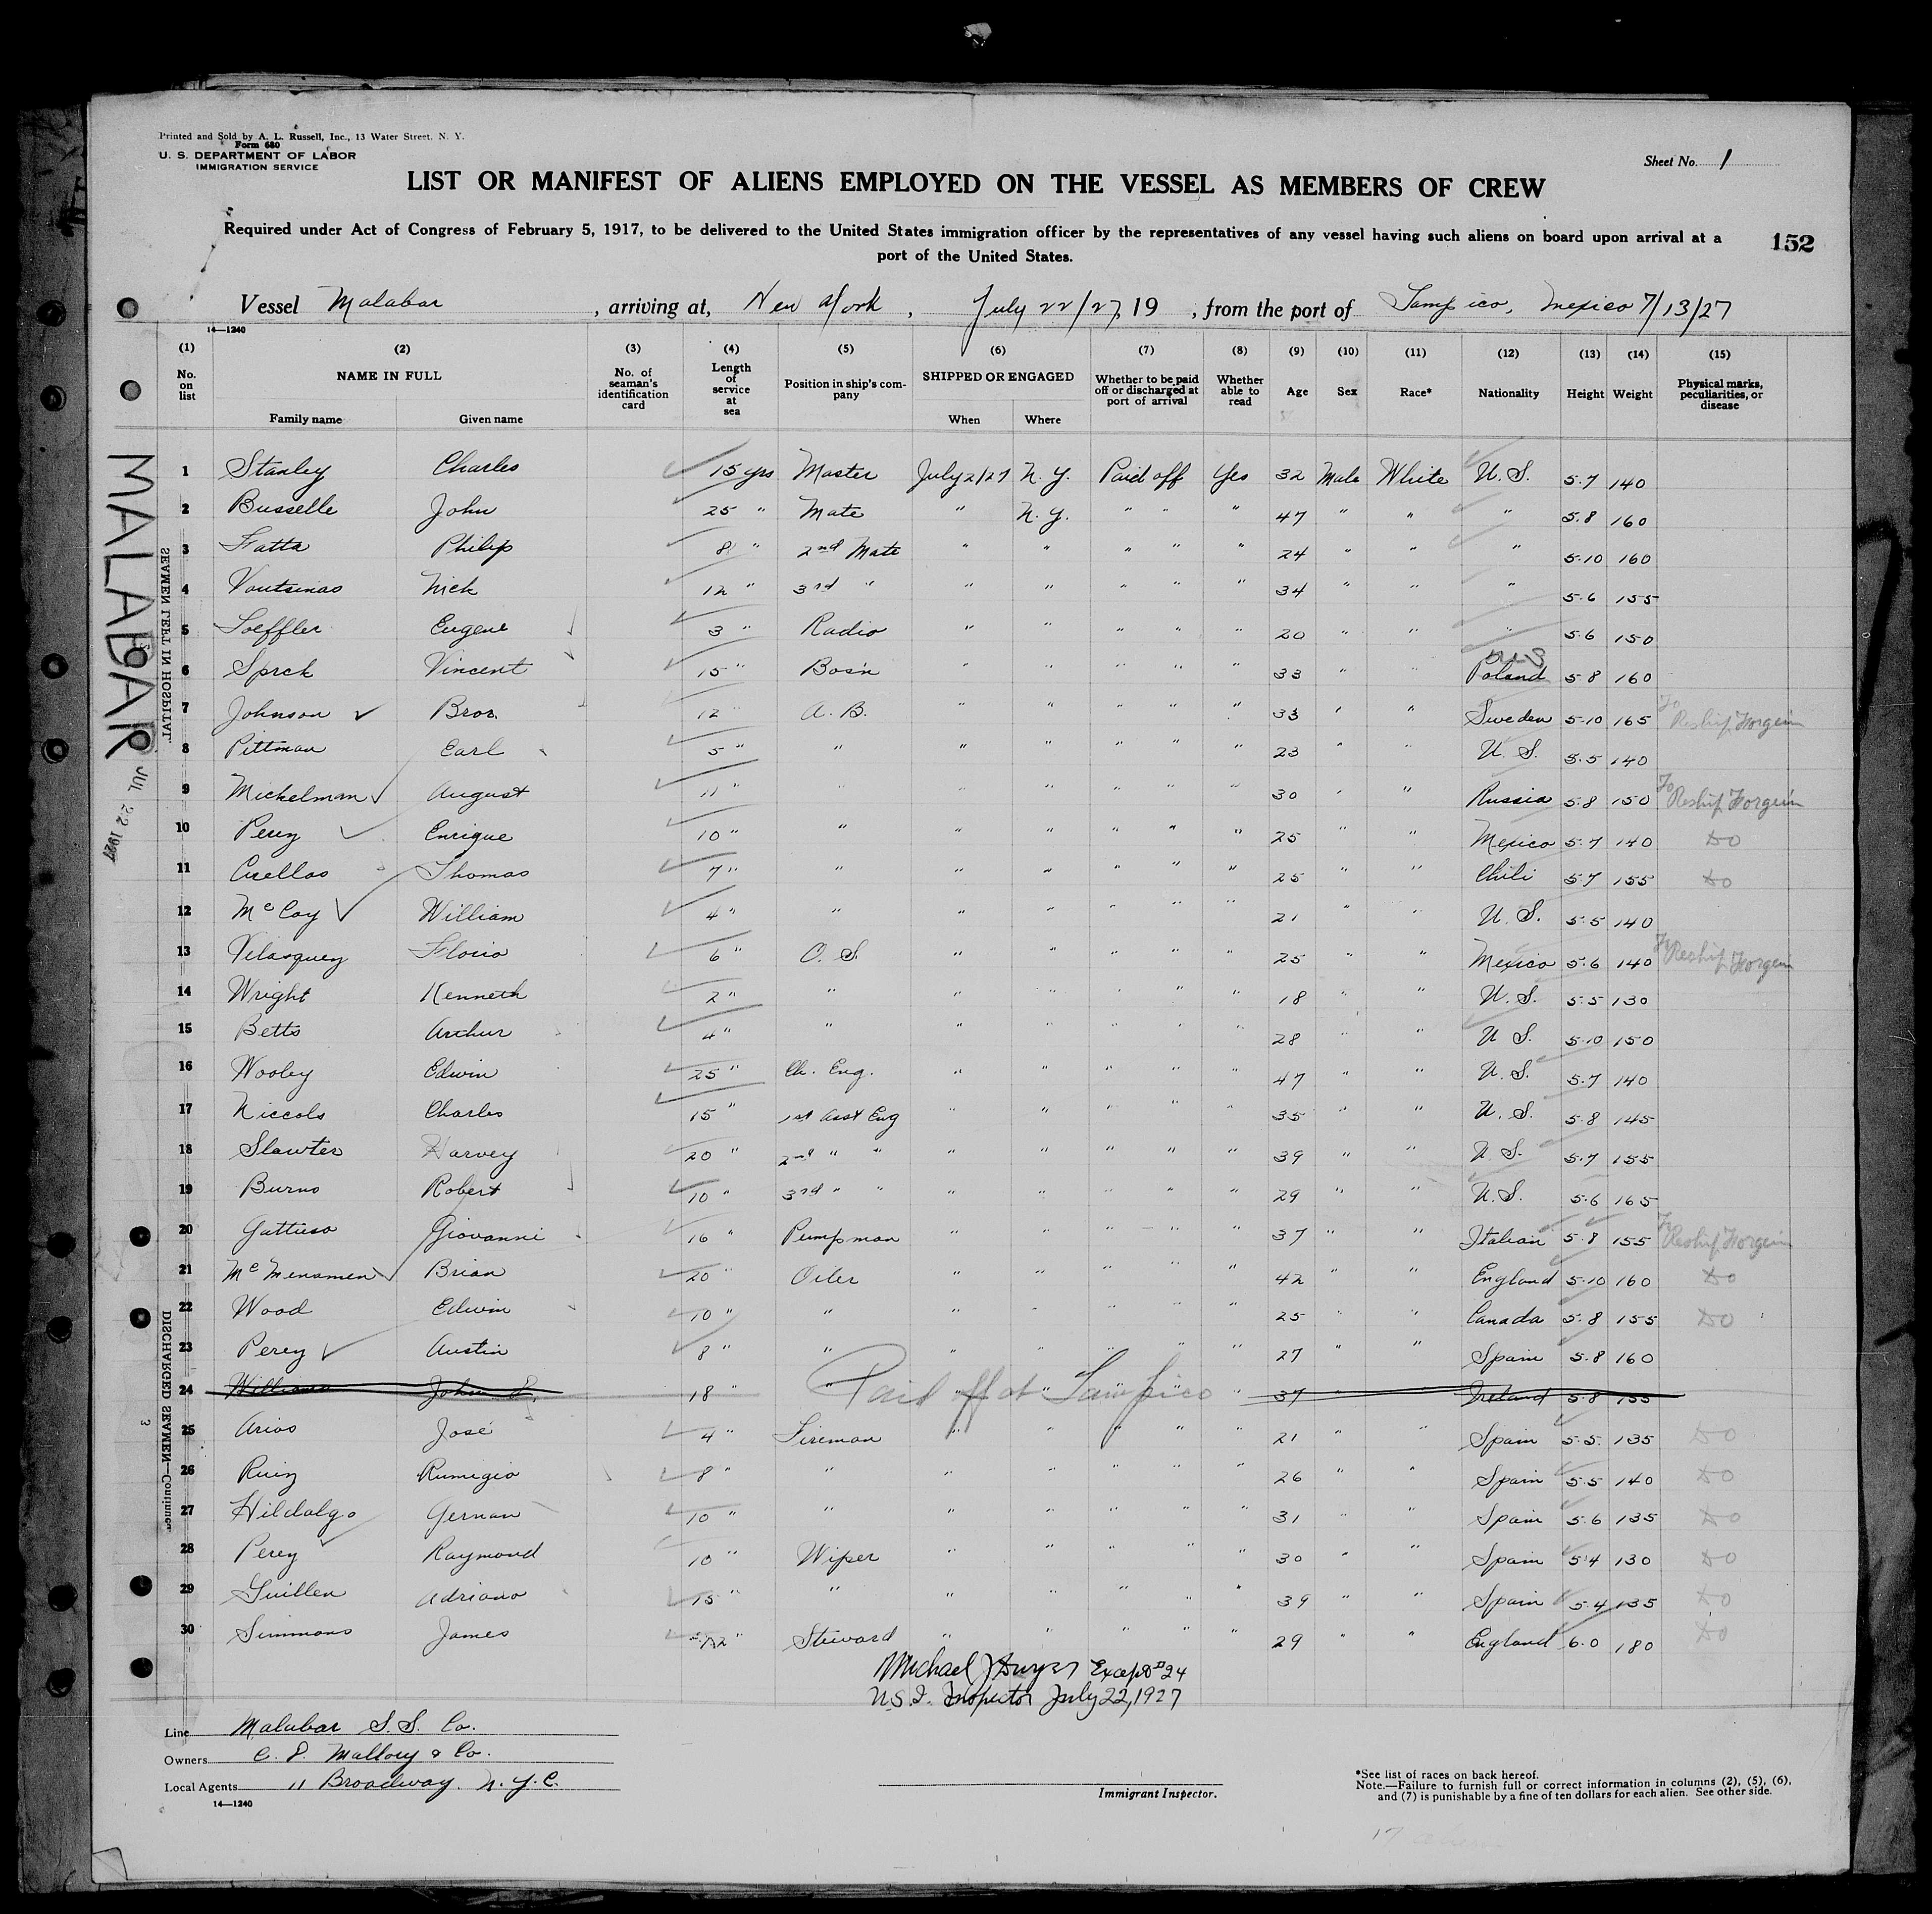 Printed and Sold by A. L. Russell, Inc., 13 Water Street, N. Y.
Form 680
U. S. DEPARTMENT OF LABOR
IMMIGRATION SERVICE
Sheet No. 1
LIST OR MANIFEST OF ALIENS EMPLOYED ON THE VESSEL AS MEMBERS OF CREW
Required under Act of Congress of February 5, 1917, to be delivered to the United States immigration officer by the representatives of any vessel having such aliens on board upon arrival at a
port of the United States.
152
Vessel Malabar, arriving at, New York, July 22/27, 19 , from the port of Tampico, Mexico 7/13/27
14—1240
(1) (2) (3) (4) (5) (6) (7) (8) (9) (10) (11) (12) (13) (14) (15)
No. on list NAME IN FULL No. of seaman's identification card Length of service at sea Position in ship's company SHIPPED OR ENGAGED Whether to be paid off or discharged at port of arrival Whether able to read Age Sex Race* Nationality Height Weight Physical marks, peculiarities, or disease
Family name Given name When Where
1 Stanley Charles 15 yrs Master July 2/27 N. Y. Paid off Yes 32 Male White U. S. 5.7 140
2 Busselle John 25 " Mate " N. Y. " " " 47 " " " 5.8 160
3 Fatta Philip 8 " 2nd Mate " " " " " 24 " " " 5-10 160
4 Voutsinas Nick 12 " 3rd " " " " " 34 " " " 5.6 155
5 Loeffler Eugene 3 " Radio " " " " " 20 " " " 5.6 150
6 Sprck Vincent 15 " Bos'n " " " " " 33 " " Poland U.S. 5.8 160
7 Johnson Bror. 12 " A. B. " " " " " 33 " " Sweden 5-10 165 To Reship Forgein
8 Pittman Earl 5 " " " " " " " 23 " " U. S. 5.5 140
9 Mickelman August 11 " " " " " " " 30 " " Russia 5.8 150 To Reship Forgein
10 Perez Enrique 10 " " " " " " " 25 " " Mexico 5.7 140 Do
11 Thomas 7 " " " " " " " 25 " " Chili 5.7 155 Do
12 McCoy William 4 " " " " " " " 21 " " U. S. 5.5 140
13 Velasquez Florio 6 " O. S. " " " " " 25 " " Mexico 5.6 140 To Reship Forgein
14 Wright Kenneth 2 " " " " " " " 18 " " U. S. 5.5 130
15 Betts Arthur 4 " " " " " " " 28 " " U S. 5-10 150
16 Wooley Edwin 25 " Ch. Eng. " " " " " 47 " " U. S. 5.7 140
17 Niccols Charles 15 " 1st Asst Eng " " " " " 35 " " U. S. 5.8 145
18 Slawter Harvey 20 " 2nd " " " " " " " 39 " " U S. 5.7 155
19 Burns Robert 10 " 3rd " " " " " " " 29 " " U. S. 5.6 165
20 Gattuso Giovanni 16 " Pumpman " " " " " 37 " " Italian 5.8 155 To Reship Forgein
21 McMenamen Brian 20 " Oiler " " " " " 42 " " England 5-10 160 Do
22 Wood Edwin 10 " " " " " " " 25 " " Canada 5.8 155 Do
23 Perez Austin 8 " " " " " " " 27 " " Spain 5.8 160
24 Williams John P. 18 " " Paid off at Tampico " 37 " Ireland 5.8 155
25 Arias José 4 " Fireman " " " " " 21 " " Spain 5.5. 135 Do
26 Ruiz Rumigio 8 " " " " " " " 26 " " Spain 5.5 140 Do
27 Hildalgo German 10 " " " " " " " 31 " " Spain 5.6 135 Do
28 Perez Raymond 10 " Wiper " " " " " 30 " " Spain 5.4 130 Do
29 Guillen Adriano 15 " " " " " " " 39 " " Spain 5.4 135 Do
30 Simmons James 12 " Steward " " " " " 29 " " England 6.0 180 Do
Michael J Dwyer Except #24
U.S.I. Inspector July 22, 1927
MALABAR
JUL 22 1927
SEAMEN LEFT IN HOSPITAL
DISCHARGED SEAMEN—Continued
3
Line Malabar S. S. Co.
Owners C. D. Mallory & Co.
Local Agents 11 Broadway. N. Y. C.
14—1240
Immigrant Inspector.
*See list of races on back hereof.
Note.—Failure to furnish full or correct information in columns (2), (5), (6),
and (7) is punishable by a fine of ten dollars for each alien. See other side.